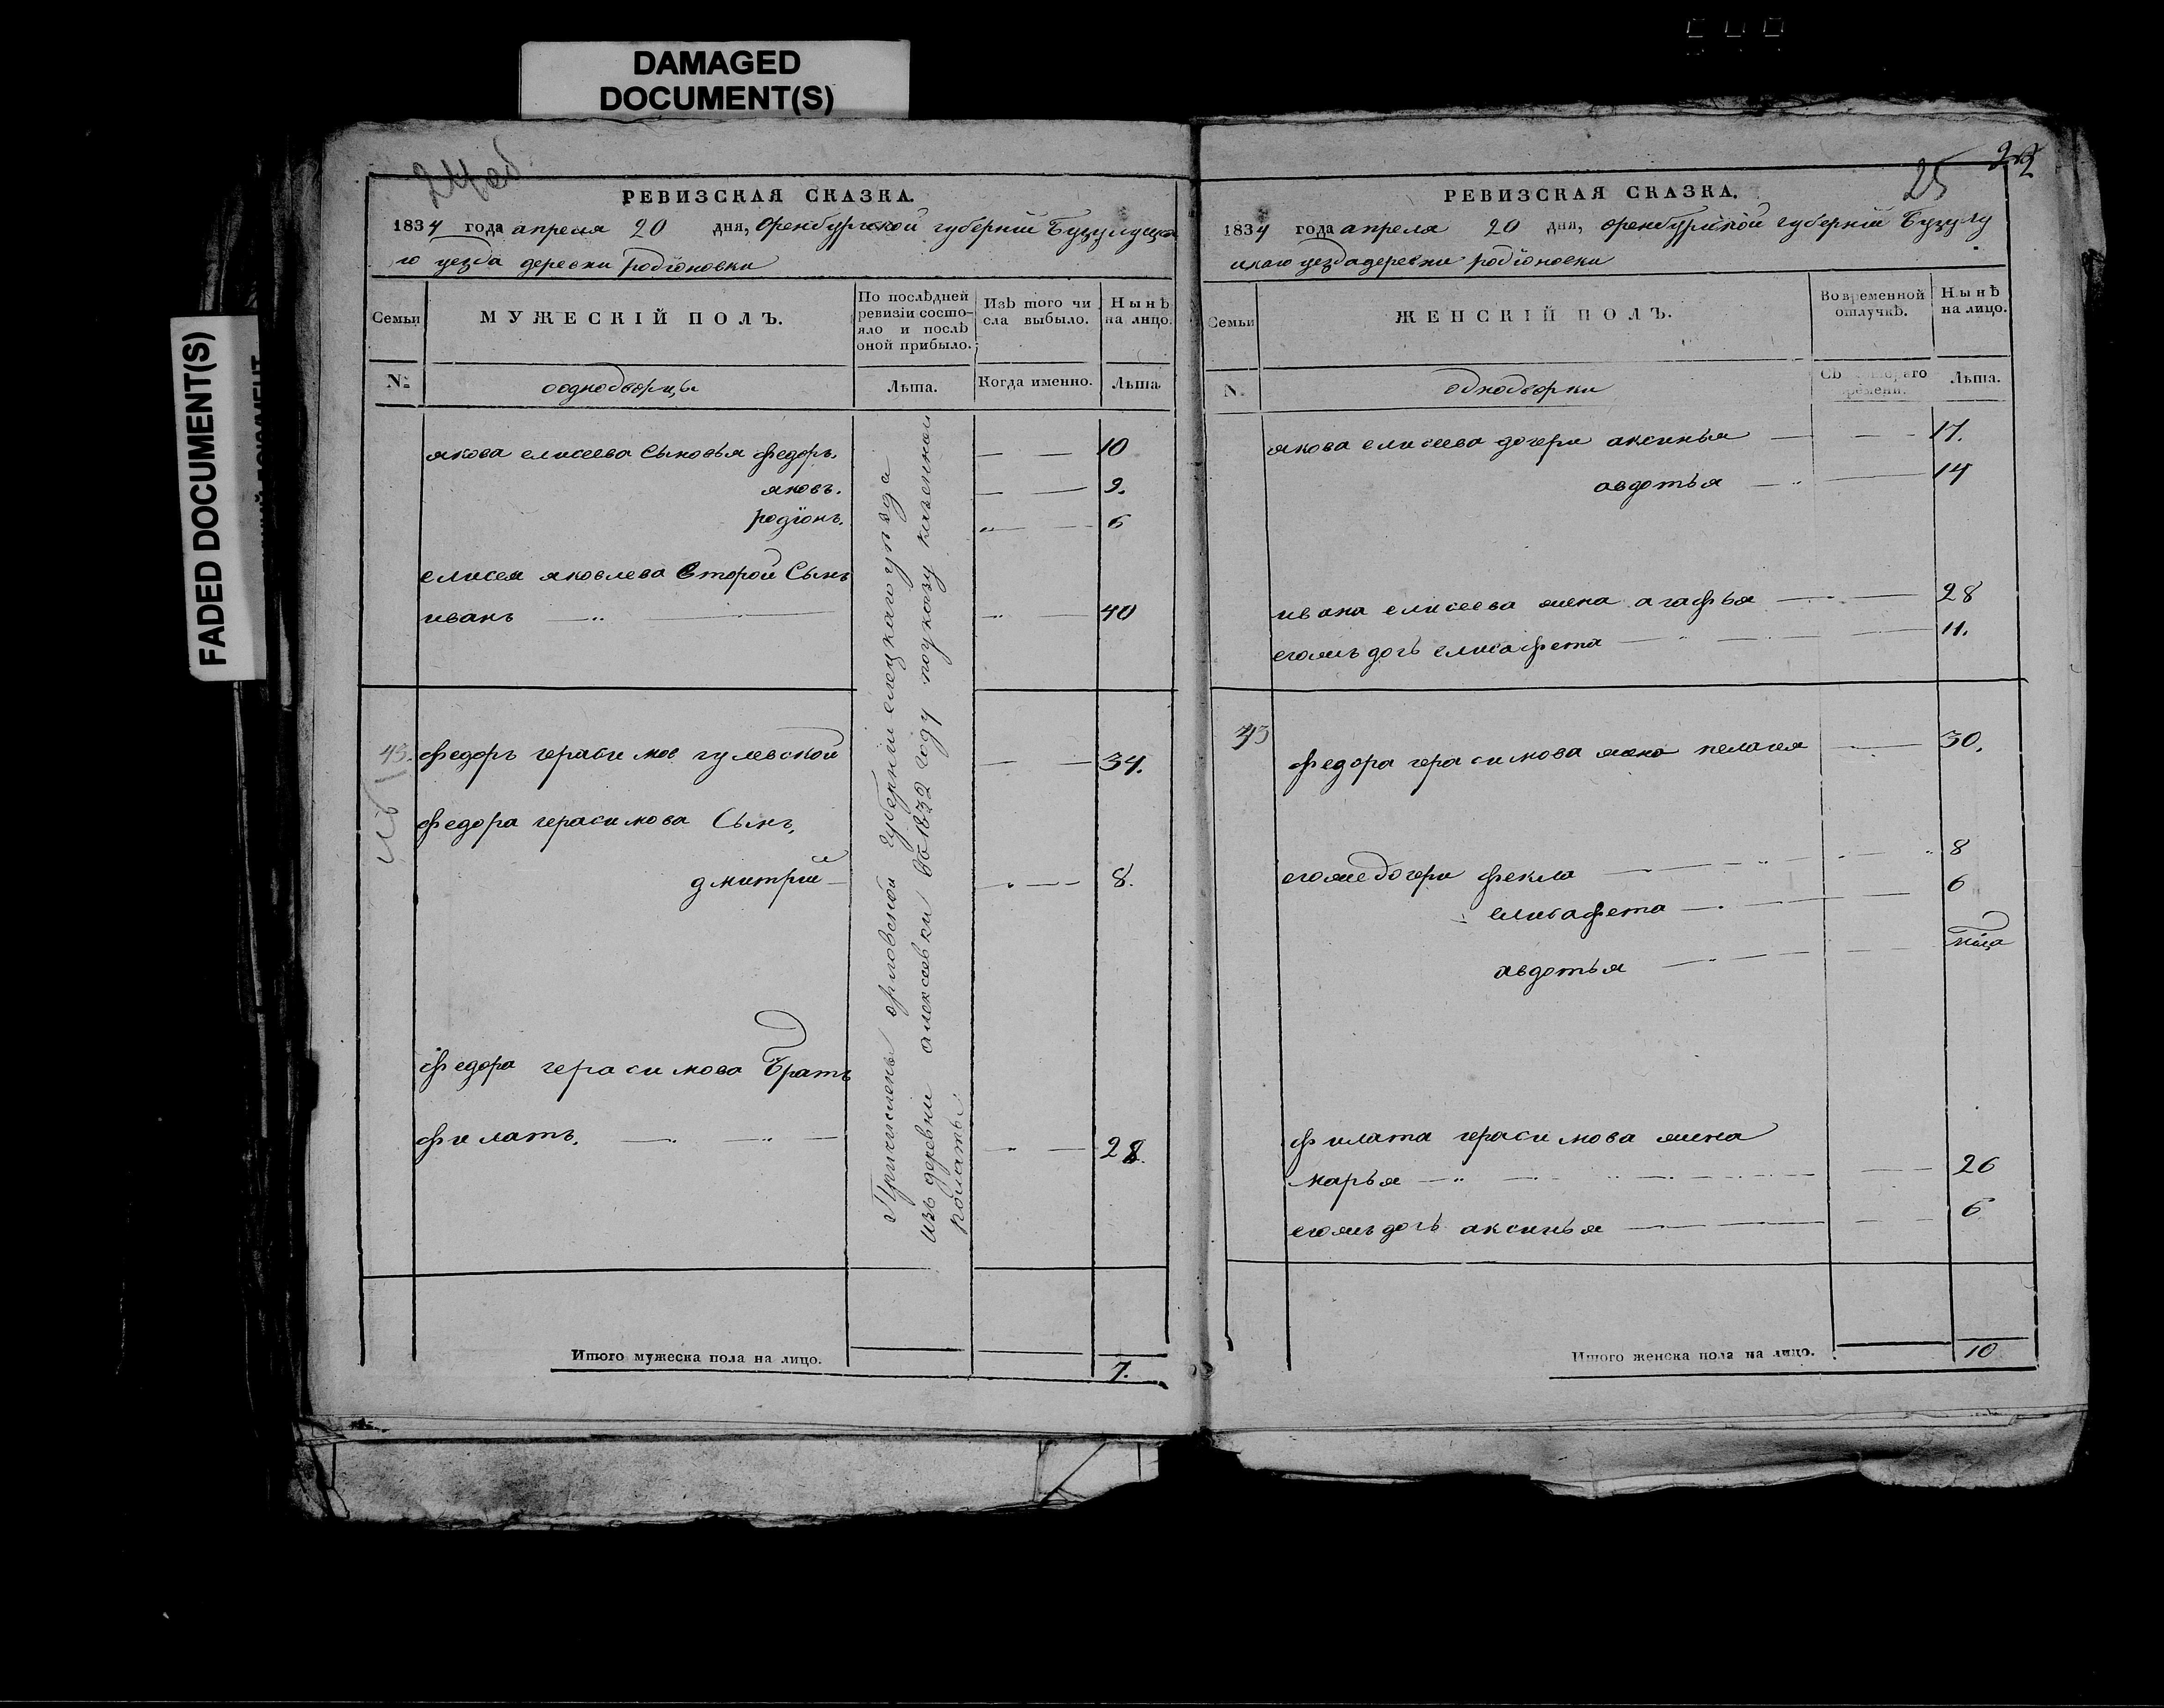 DAMAGED
DOCUMENT(S)
FADED DOCUMENT(S)
24 об
РЕВИЗСКАЯ СКАЗКА.
1834 года апреля 20 дня, Оренбургской губернiи Бузулуцка
го уезда деревни Родiоновки
Семьи
МУЖЕСКIЙ ПОЛЪ.
По послѣдней
ревизiи состо-
яло и послѣ
оной прибыло.
Изъ того чи
сла выбыло.
Нынѣ
на лицо.
№
однодворцы
Лѣта.
Когда именно.
Лѣта
якова елисеева Сыновья федоръ. 10
яковъ. 9.
родiонъ. 6
елисея яковлева второй Сынъ
иванъ 40
43. федоръ герасимов гулевской 34.
федора герасимова Сынъ,
дмитрiй 8.
федора герасимова Братъ
филатъ. 28.
Причислены орловской губернiи елецкаго уѣзда
изъ деревни алексеевки во 1832 году по указу казенной
полаты.
Итого мужеска пола на лицо.
7.
25
РЕВИЗСКАЯ СКАЗКА.
1834 года апреля 20 дня, оренбургской губернiи Бузулу
цкаго уезда деревни родiоновки
Семьи
ЖЕНСКIЙ ПОЛЪ.
Во временной
отлучкѣ.
Нынѣ
на лицо.
N.
однодворки
Лѣта.
якова елисеева дочери аксинья 17.
авдотья 14
ивана елисеева жена агафья 28
егожъ дочь елисафета 11.
43 федора герасимова жена пелагея 30.
егоже дочери фекла 8
елисафета 6
авдотья
филата герасимова жена
марья 26
егожъ дочь аксинья 6
Итого женска пола на лицо.
10